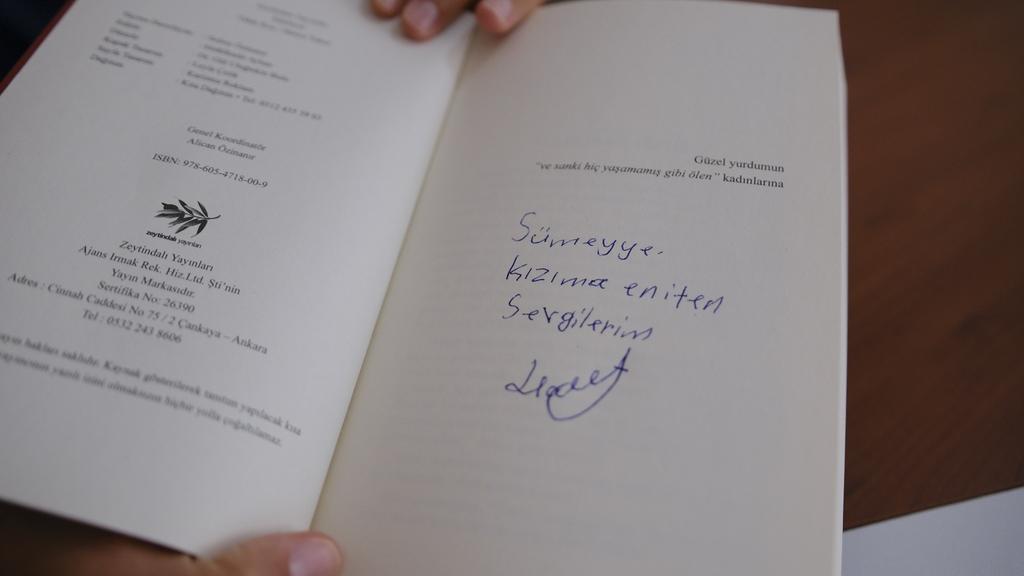 Genel Koordinatör
Alican Özinanır
ISBN: 978-605-4718-00-9
zeytindalı yayınları
Zeytindalı Yayınları
Ajans Irmak Rek. Hiz.Ltd. Şti'nin
Yayın Markasıdır.
Sertifika No: 26390
Adres : Cinnah Caddesi No 75 / 2 Çankaya – Ankara
Tel : 0532 243 8606
hakları saklıdır. Kaynak gösterilerek tanıtım yapılacak kısa
yazılı izini olmaksızın hiçbir yolla çoğaltılamaz.
Güzel yurdumun
"ve sanki hiç yaşamamış gibi ölen" kadınlarına
Sümeyye.
Kızıma eniten
Sevgilerim